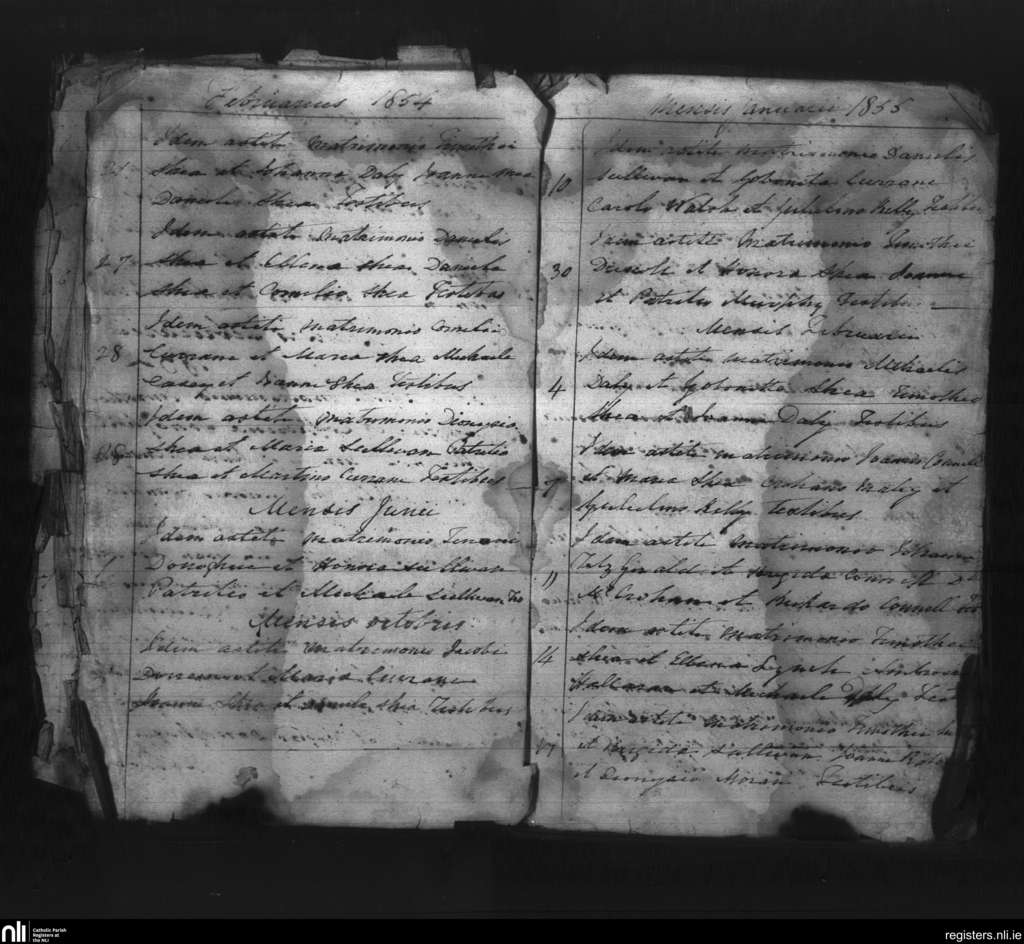 Februarius 1854
Idem astiti Matrimonio Timothei
Shea et Johanna Daly Joanne Shea
Daniele Shea Testibus
Idem astiti Matrimonio Danielis
27 Shea et Ellena Shea Daniele
Shea et Cornelio Shea Testibus
Idem astiti Matrimonio Cornelii
28 Currane et Maria Shea Michaele
Casey et Joanne Shea Testibus
Idem astiti Matrimonio Dionysio
28 Shea et Maria Sullivan Patritio
Shea et Martino Currane Testibus
Mensis Junii
Idem astiti Matrimonio
Donoghue et Honora Sullivan
Patritio et Michaele Sullivan Tes
Mensis Octobris
Idem astiti Matrimonio Jacobi
et Maria Currane
Joanne Shea et Shea Testibus
Mensis Januarii 1855
Idem astiti Matrimonio Danielis
10 Sullivan et Gobonita Currane
Carolo Walsh et Gulielmo Kelly Testibus
Idem astiti Matrimonio Timothei
30 et Honora Shea Joanne
et Patritio Murphy Testibus
Mensis Februarii
Idem astiti Matrimonio Michaelis
4 Daly et Gobonita Shea Timotheo
Shea et Joanne Daly Testibus
Idem astiti Matrimonio Joannis Connell
9 et Maria Shea et
Gulielmo Kelly Testibus
Idem astiti Matrimonio
11 Fitzgerald et Brigida
McCrohan et Richardo Connell
Idem astiti Matrimonio Timothei
14 Shea et Ellena Lynch Ambrosio
Halloran et Michaele
Idem astiti Matrimonio Timothei
17 et Brigida Sullivan Joanne
et Dionysio Moran Testibus
nli
Catholic Parish
Registers at
the NLI
registers.nli.ie